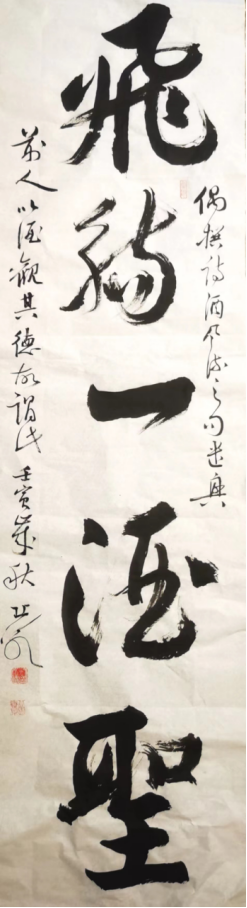 偶撰詩酒風流之句遣興
飛觴一酒聖
前人以酒觀其德故謂此 壬寅歲秋